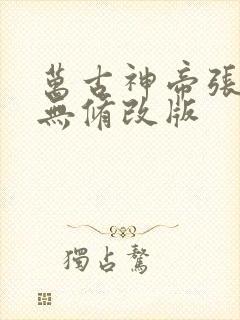 萬古神帝張
無脩改版
獨占鰲